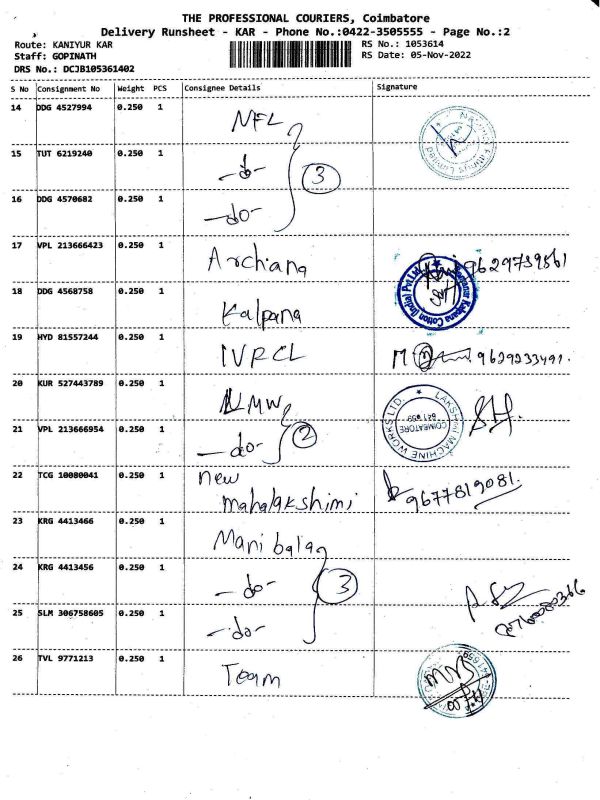 THE PROFESSIONAL COURIERS, Coimbatore
Delivery Runsheet - KAR - Phone No.:0422-3505555 - Page No.:2
Route: KANIYUR KAR
RS No.: 1053614
Staff: GOPINATH
RS Date: 05-Nov-2022
DRS No.: DCJB105361402
S No Consignment No Weight PCS Consignee Details Signature
14 DDG 4527994 0.250 1 NFL
15 TUT 6219240 0.250 1 -do- 3
16 DDG 4570682 0.250 1 -do-
17 VPL 213666423 0.250 1 Archana 9629739861
18 DDG 4568758 0.250 1 Kalpana
19 HYD 81557244 0.250 1 IVRCL 9629233491.
20 KUR 527443789 0.250 1 LMW LAKSHMI MACHINE WORKS LTD. COIMBATORE 641 659
21 VPL 213666954 0.250 1 -do- 2
22 TCG 10080041 0.250 1 new mahalakshimi 9677819081.
23 KRG 4413466 0.250 1 Manibala
24 KRG 4413456 0.250 1 -do- 3
25 SLM 306758605 0.250 1 -do-
26 TVL 9771213 0.250 1 Team